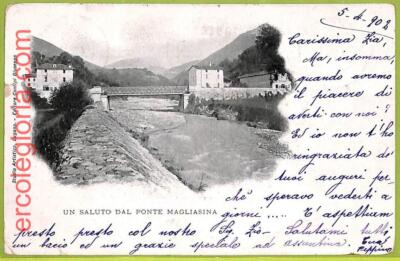 5-4-902
Carissima Zia,
Ma, insomma,
quando avremo
il piacere di
averti con noi?
Ed io non t'ho
ringraziata de'
tuoi auguri per-
chè speravo vederti a
giorni ,.... T'aspettiam
presto presto col nostro Sig. Zio- Salutami tutti
un bacio ed un grazie speciale ad assuntina. Tuo
Peppino
UN SALUTO DAL PONTE MAGLIASINA
ercolegloria.com